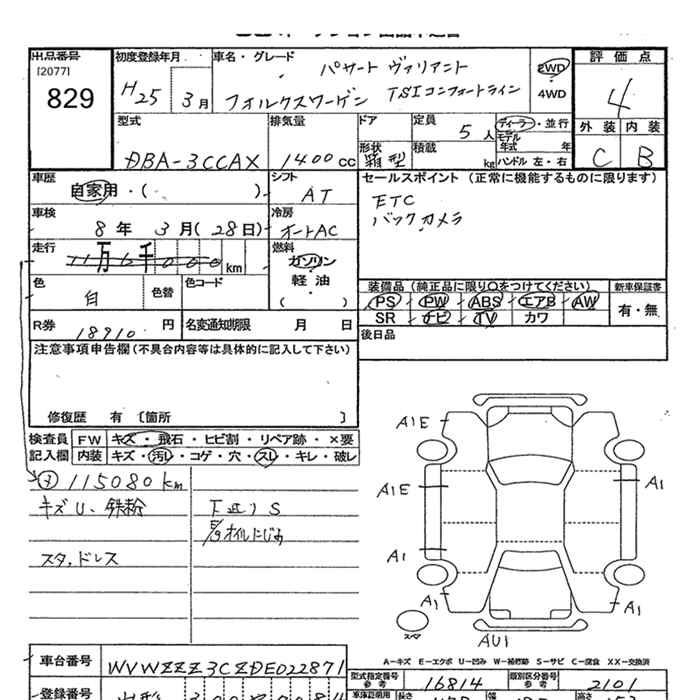 出品番号
[2077]
829
初度登録年月
H25 3月
車名・グレード
パサート ヴァリアント
フォルクスワーゲン TSIコンフォートライン
2WD
4WD
評価点
4
外装 内装
C B
型式
DBA-3CCAX
排気量
1400cc
ドア
形状
箱型
定員
5人
積載
kg
ディーラー・並行
モデル
年式 年
ハンドル 左・右
車歴
自家用・( )
シフト
AT
セールスポイント (正常に機能するものに限ります)
ETC
バックカメラ
車検
8年 3月(28日)
冷房
オートAC
走行
11万6千000km
燃料
ガソリン
軽油
( )
色
白
色替
色コード
装備品 (純正品に限り○をつけてください)
PS PW ABS エアB AW
SR ナビ TV カワ
新車保証書
有・無
R券
18910円
名変通知期限 月 日
後日品
注意事項申告欄(不具合内容等は具体的に記入して下さい)
修復歴 有 〔箇所 〕
検査員
記入欄
FW キズ・飛石・ヒビ割・リペア跡・×要
内装 キズ・汚レ・コゲ・穴・スレ・キレ・破レ
115080km
キズU、鉄粉
下廻りS
E/gオイルにじみ
スタッドレス
A1E
A1E
A1
A1
A1
A1
AU1
スマ
A－キズ E－エクボ U－凹み W－補修跡 S－サビ C－腐食 XX－交換済
車台番号
WVWZZZ3CZDE022871
型式指定番号
参考
16814
類別区分番号
参考
2101
登録番号